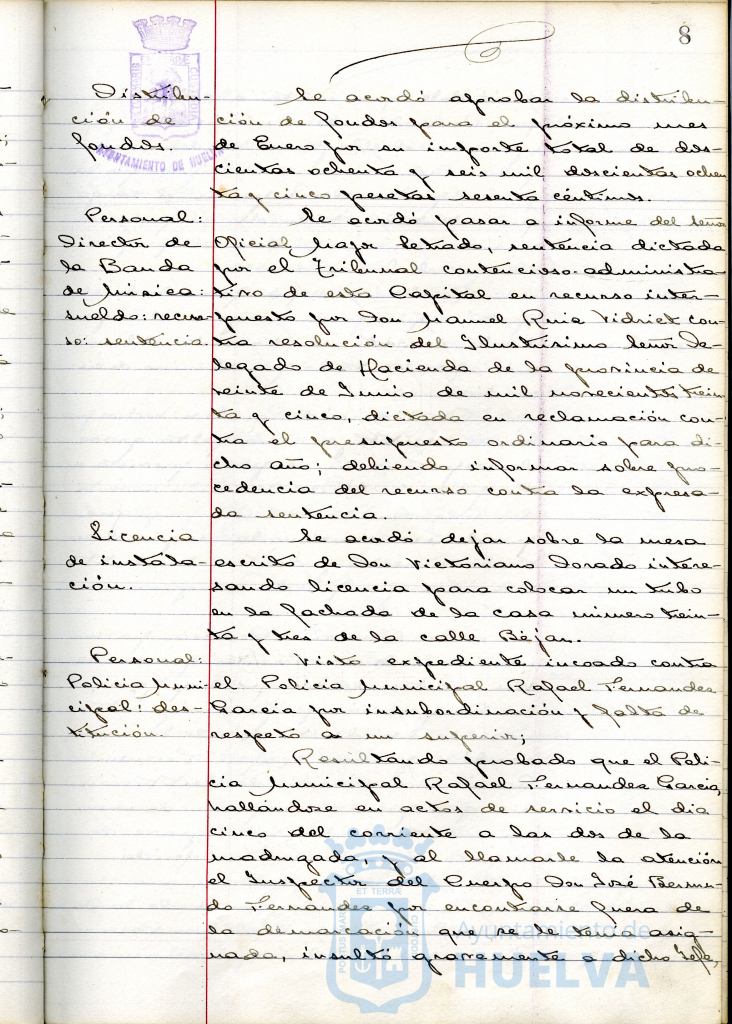 8
AYUNTAMIENTO DE HUELVA
Distribu-
ción de
fondos.
Se acordó aprobar la distribu-
ción de fondos para el próximo mes
de Enero por su importe total de dos-
cientas ochenta y seis mil doscientas ochen
ta y cinco pesetas sesenta céntimos.
Personal:
Director de
la Banda
de Música:
sueldo: recur-
so: sentencia.
Se acordó pasar a informe del señor
Oficial Mayor Letrado, sentencia dictada
por el Tribunal contencioso-administra
tivo de esta Capital en recurso inter-
puesto por Don Manuel Ruiz Vidriet con-
tra resolución del Ilustrísimo Señor De-
legado de Hacienda de la provincia de
veinte de Junio de mil novecientos trein
ta y cinco, dictada en reclamación con-
tra el presupuesto ordinario para di-
cho año; debiendo informar sobre pro-
cedencia del recurso contra la expresa-
da sentencia.
Licencia
de instala-
ción.
Se acordó dejar sobre la mesa
escrito de Don Victoriano Dorado intere-
sando licencia para colocar un tubo
en la fachada de la casa número trein-
ta y tres de la calle Béjar.
Personal:
Policía Muni-
cipal: des-
titución.
Visto expediente incoado contra
el Policía Municipal Rafael Fernandez
García por insubordinación y falta de
respeto a un superior;
Resultando probado que el Poli-
cía Municipal Rafael Fernandez García,
hallándose en actos de servicio el día
cinco del corriente a las dos de la
madrugada, y al llamarle la atención
el Inspector del Cuerpo Don José Bermu-
do Fernandez por encontrarse fuera de
la demarcación que se le tenía asig-
nada, insultó gravemente a dicho Jefe,
Ayuntamiento de
HUELVA